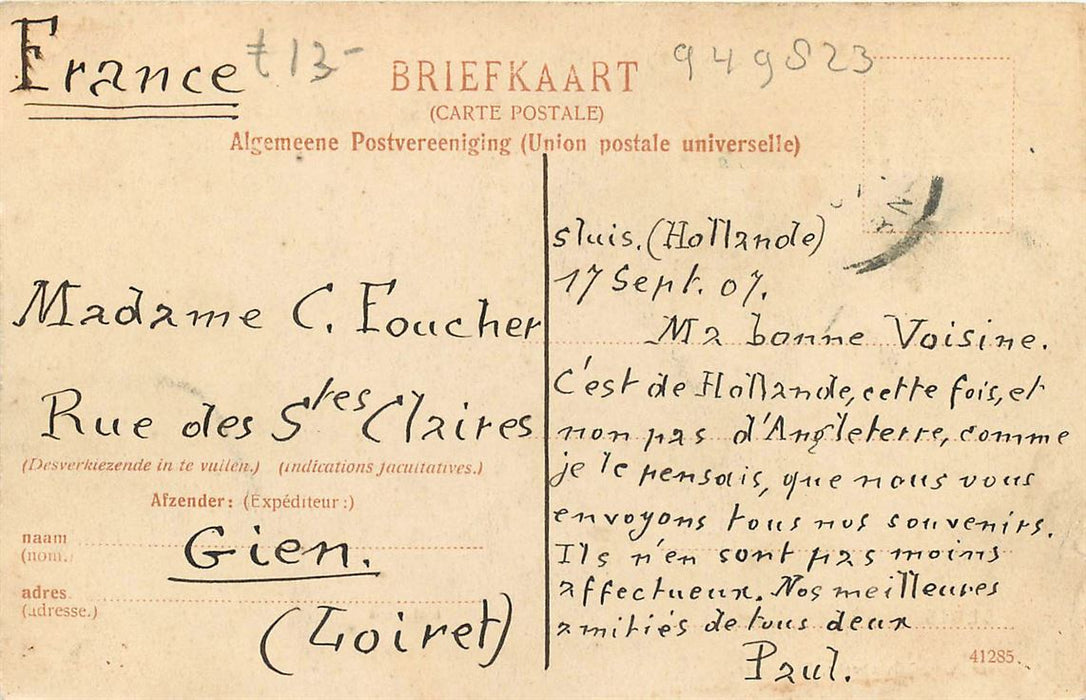 France
₤ 13-
949823
BRIEFKAART
(CARTE POSTALE)
Algemeene Postvereeniging (Union postale universelle)
Madame C. Foucher
Rue des Stes Claires
(Desverkiezende in te vullen.) (indications facultatives.)
Afzender: (Expéditeur:)
naam
(nom.)
Gien.
adres.
(adresse.)
(Loiret)
Sluis. (Hollande)
17 Sept. 07.
Ma bonne Voisine.
C'est de Hollande, cette fois, et
non pas d'Angleterre, comme
je le pensais, que nous vous
envoyons tous nos souvenirs.
Ils n'en sont pas moins
affectueux. Nos meilleures
amitiés de tous deux
Paul.
41285.